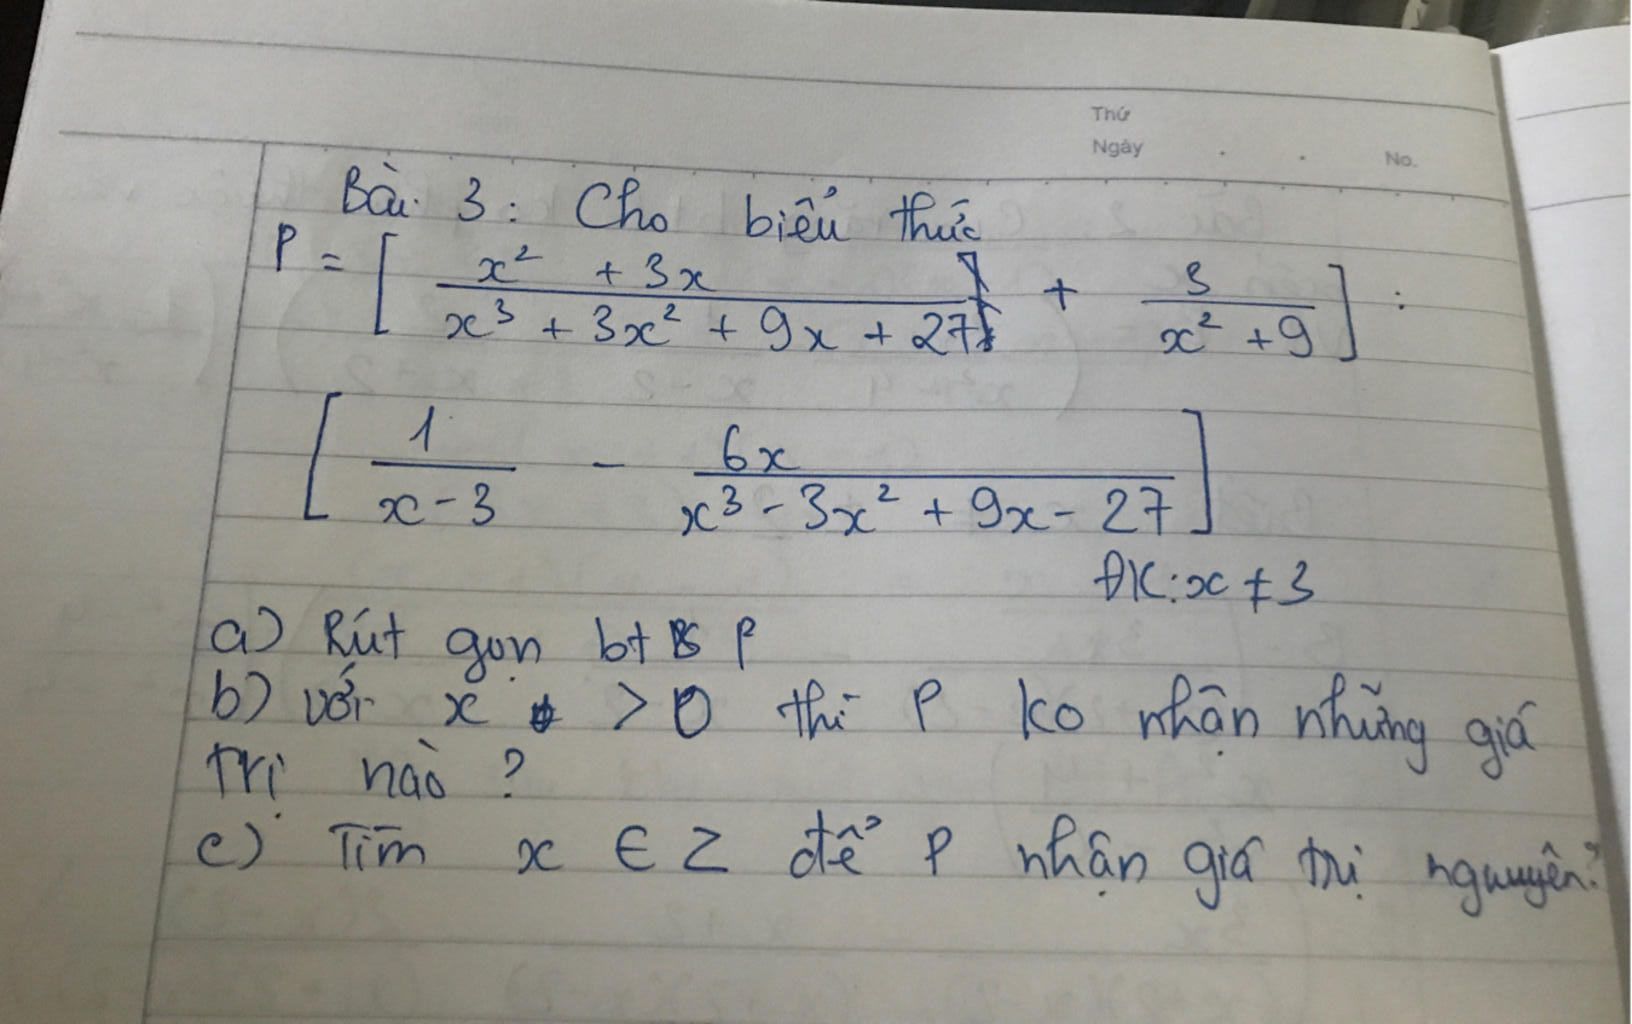 Thứ
Ngày
No.
Bài 3: Cho biểu thức
P = [ (x² + 3x)/(x³ + 3x² + 9x + 27) + 3/(x² + 9) ] :
[ 1/(x - 3) - 6x/(x³ - 3x² + 9x - 27) ]
ĐK: x ≠ 3
a) Rút gọn bt P
b) với x > 0 thì P ko nhận những giá
trị nào ?
c) Tìm x ∈ Z để P nhận giá trị nguyên?